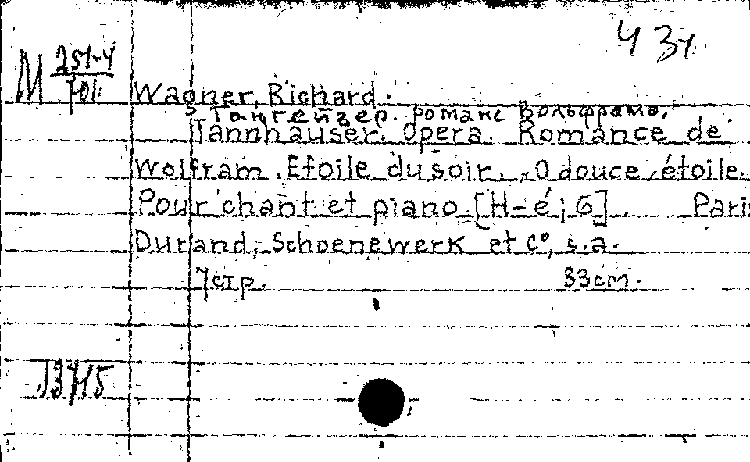 М 251-4
701
Wagner, Richard.
Тангейзер. романс Вольфрама.
Tannhäuser. Opera. Romance de
Wolfram. Etoile du soir. "O douce étoile.
Pour chant et piano. [H-é; G]. Pari
Durand, Schoenewerk et Cº, s.a.
7 стр. 33 см.
13715